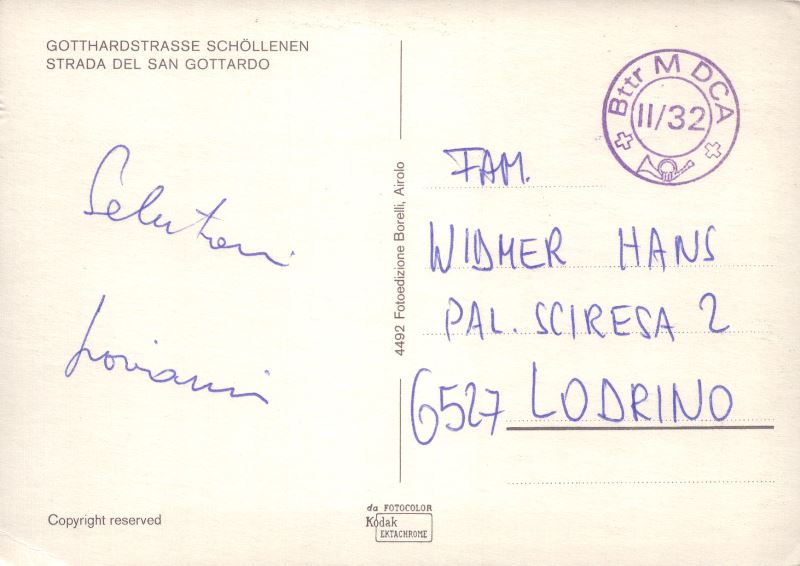 GOTTHARDSTRASSE SCHÖLLENEN
STRADA DEL SAN GOTTARDO
Bttr M DCA
II/32
Saluti
FAM.
WIDMER HANS
PAL. SCIRESA 2
6527 LODRINO
4492 Fotoedizione Borelli, Airolo
Copyright reserved
da FOTOCOLOR
Kodak
EKTACHROME